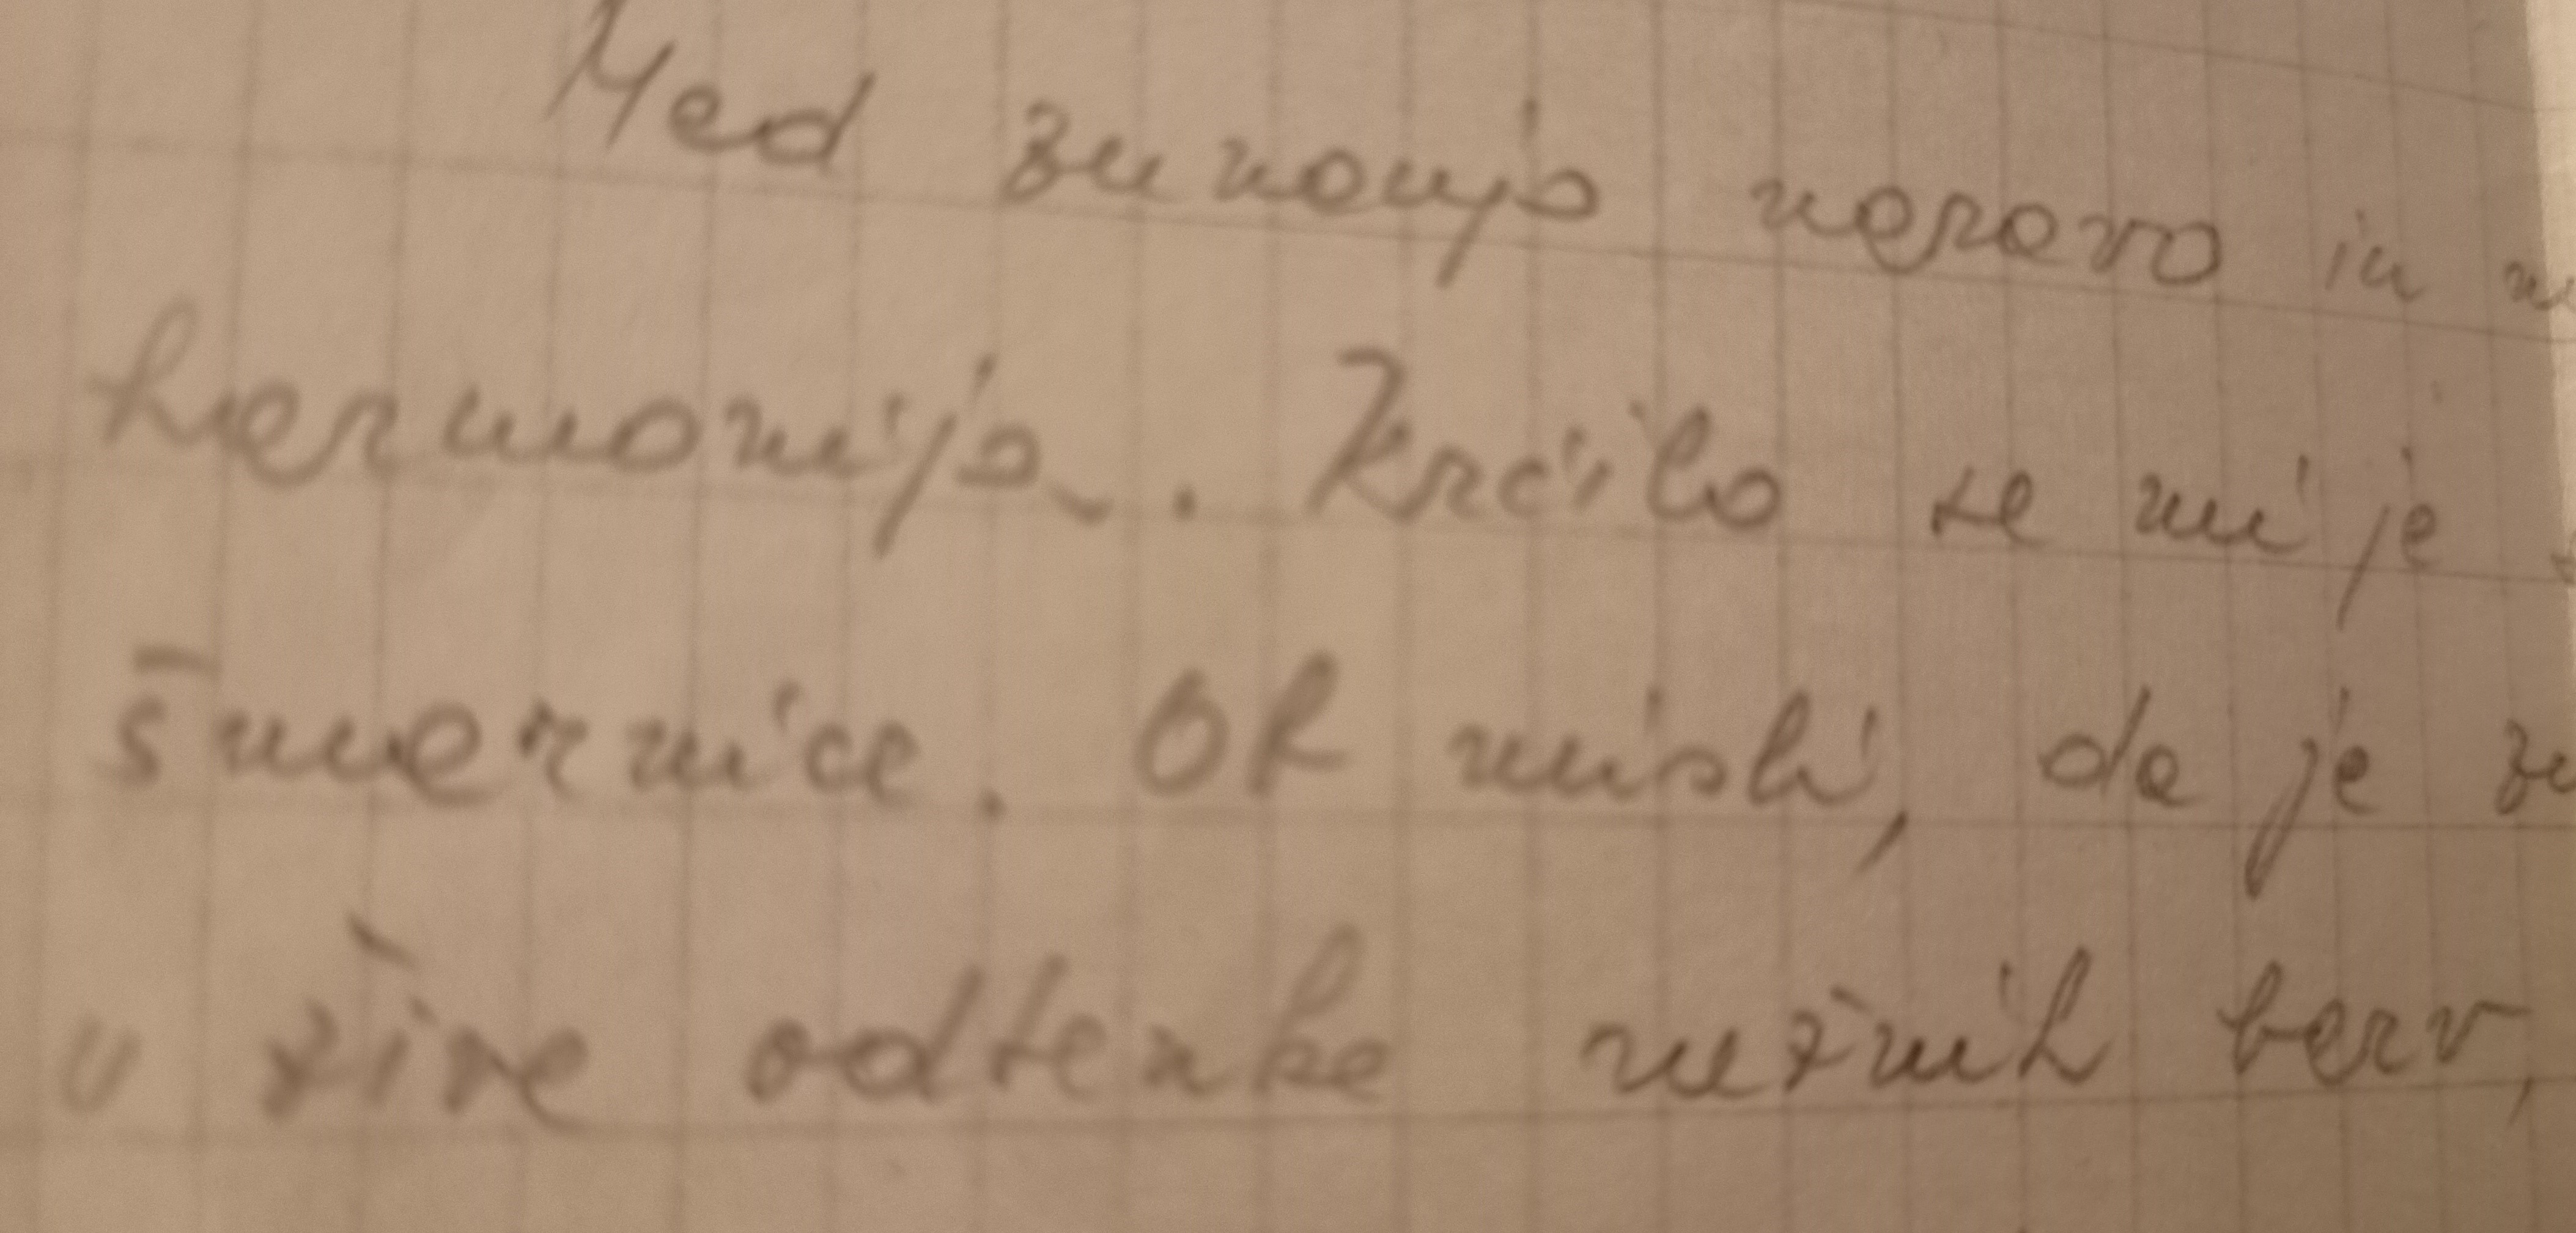 Med zunanjo naravo in
harmonija. Krčilo se mi je
šmarnice. Ob misli, da je
v žive odtenke nežnih barv,